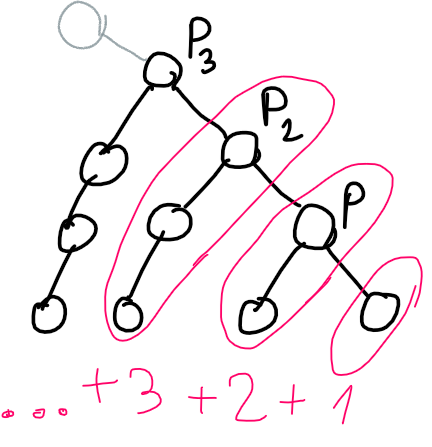 P₃
P₂
P
... +3 +2 + 1